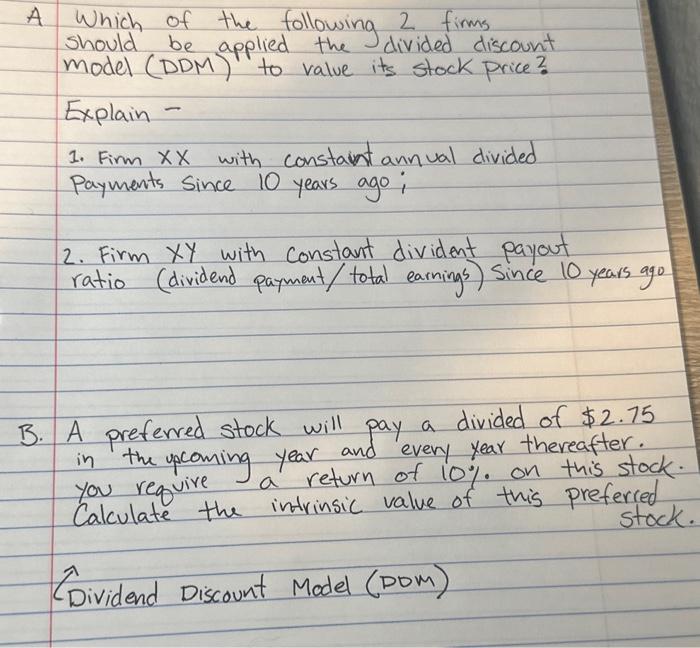 A Which of the following 2 firms
should be applied the divided discount
model (DDM) to value its stock price?
Explain -
1. Firm XX with constant annual divided
Payments Since 10 years ago;
2. Firm XY with constant divident payout
ratio (dividend payment/total earnings) Since 10 years ago
B. A preferred stock will pay a divided of $2.75
in the upcoming year and every year thereafter.
you require a return of 10% on this stock.
Calculate the intrinsic value of this preferred
stock.
Dividend Discount Model (DDM)